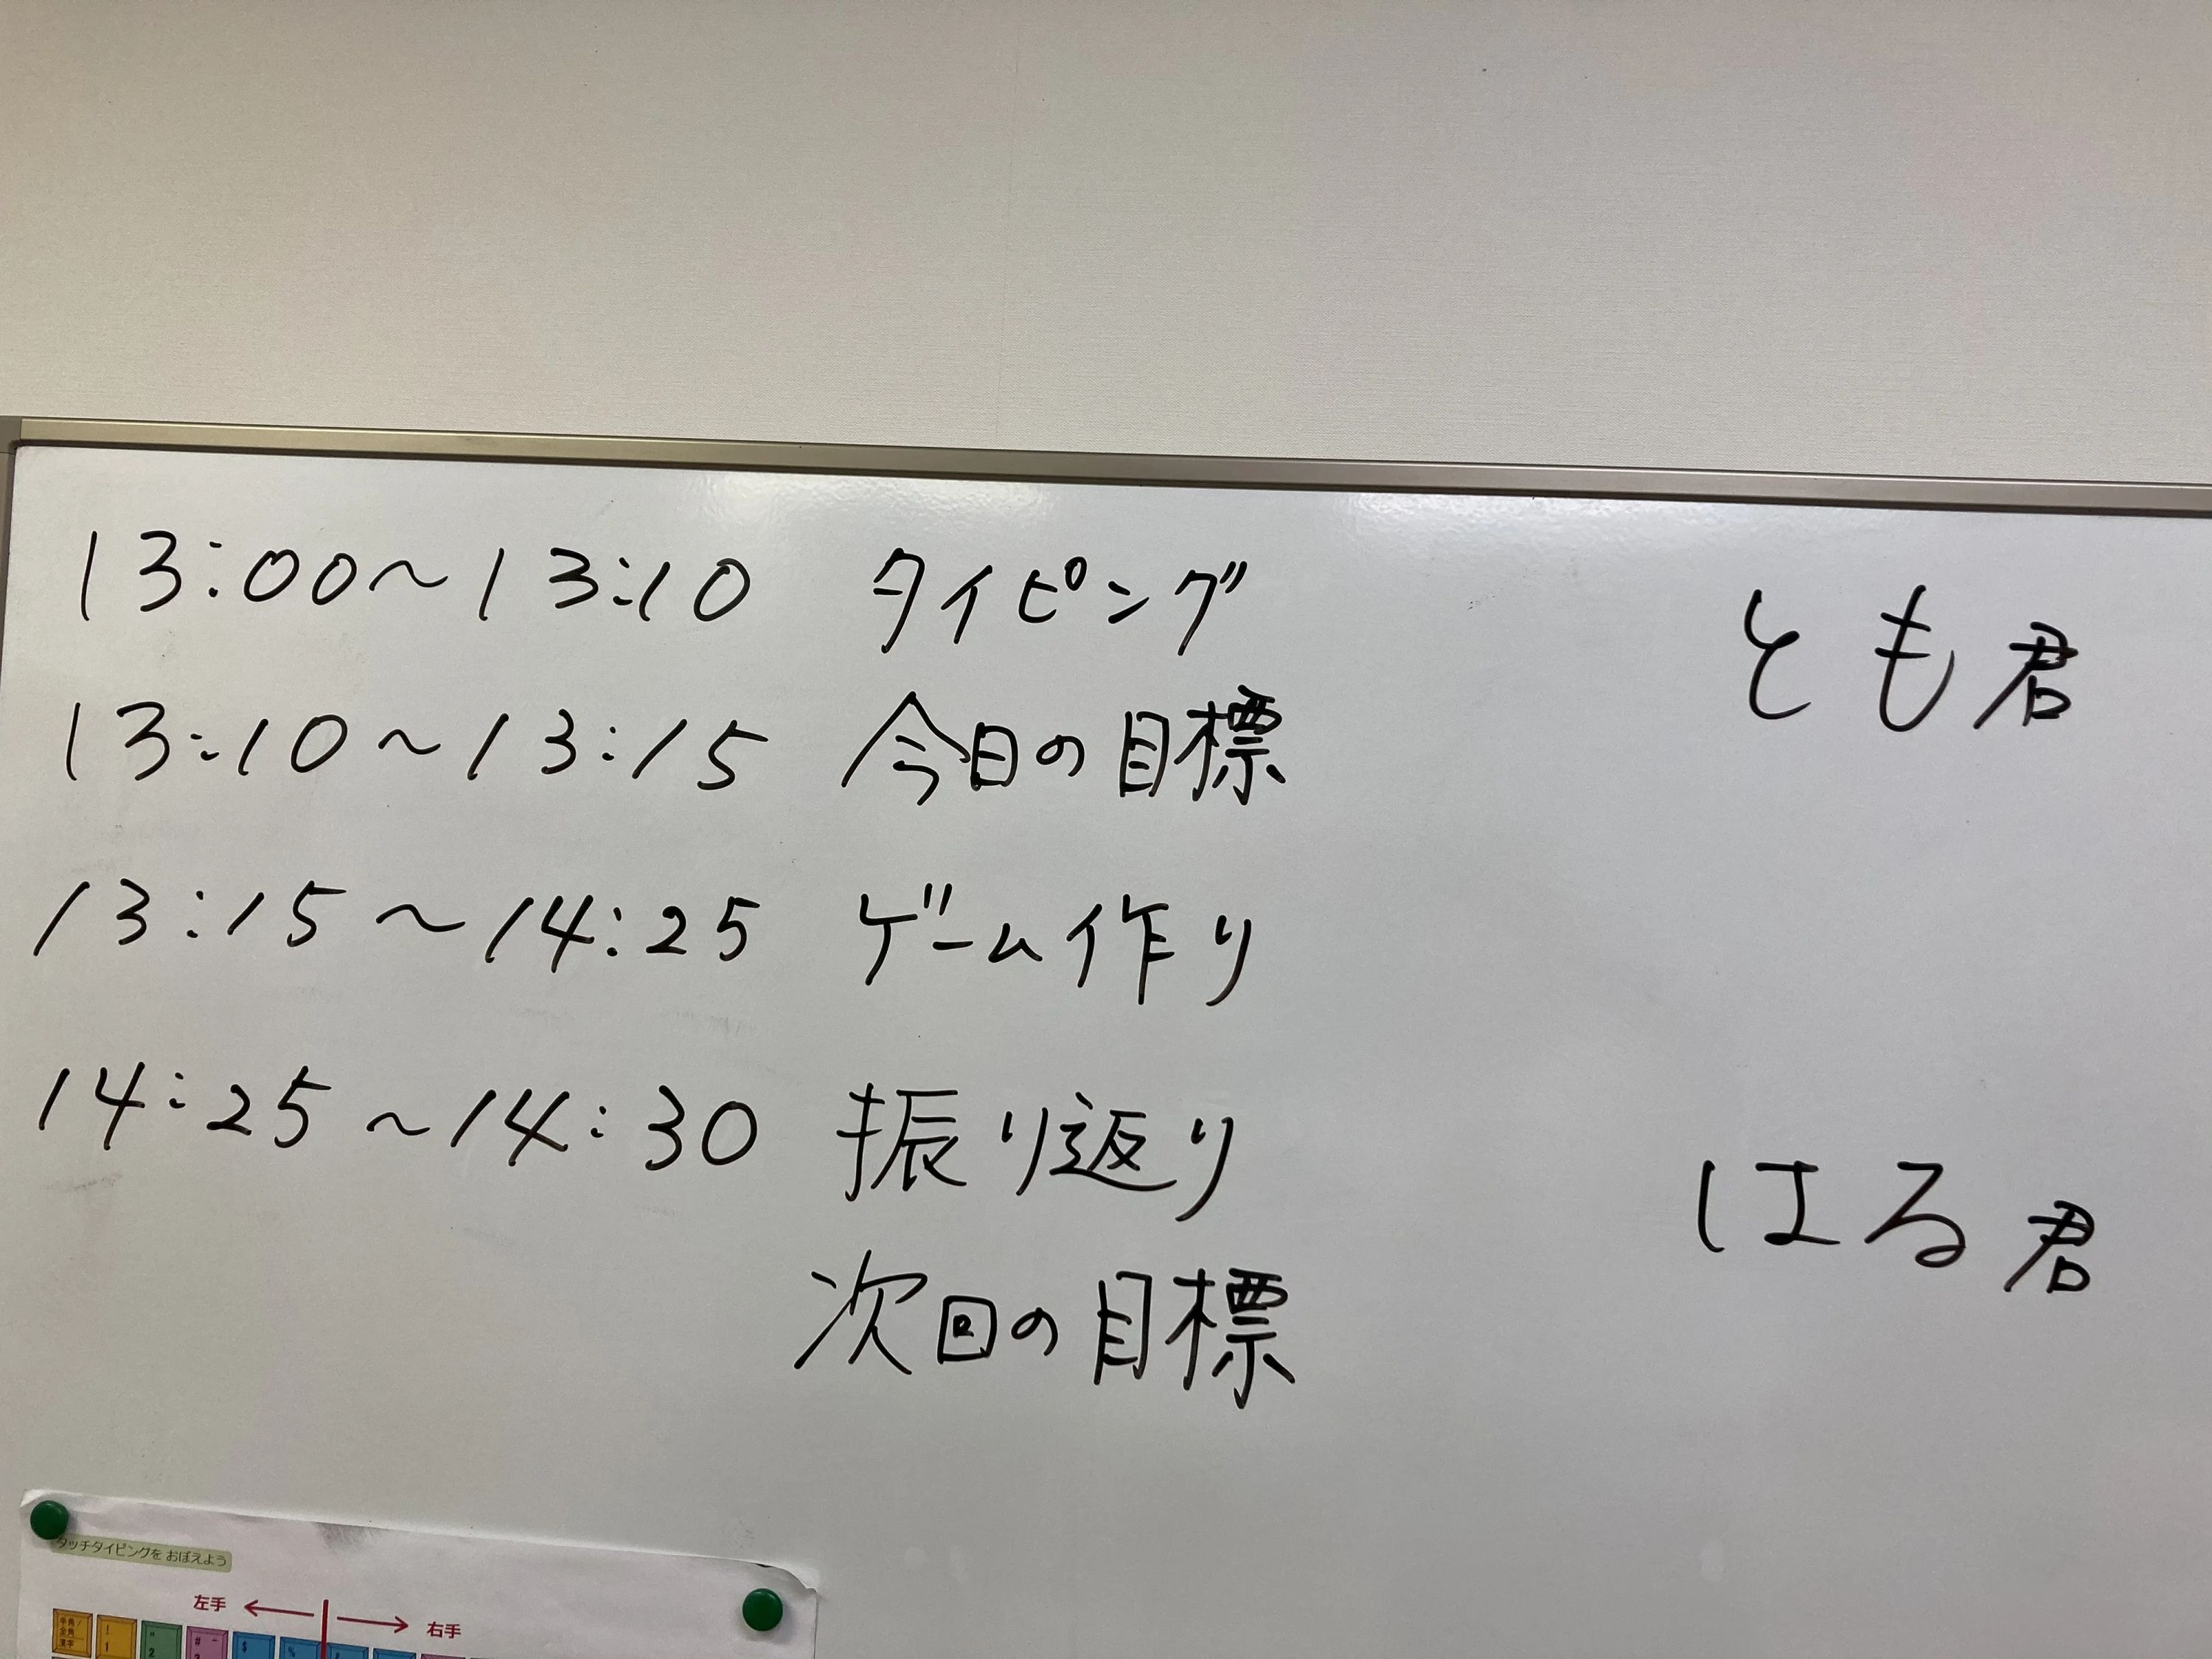 13:00〜13:10 タイピング
13:10〜13:15 今日の目標
13:15〜14:25 ゲーム作り
14:25〜14:30 振り返り
次回の目標
とも君
はる君
タッチタイピングを おぼえよう
左手
右手
半角/
全角
漢字
!
1
"
2
#
3
$